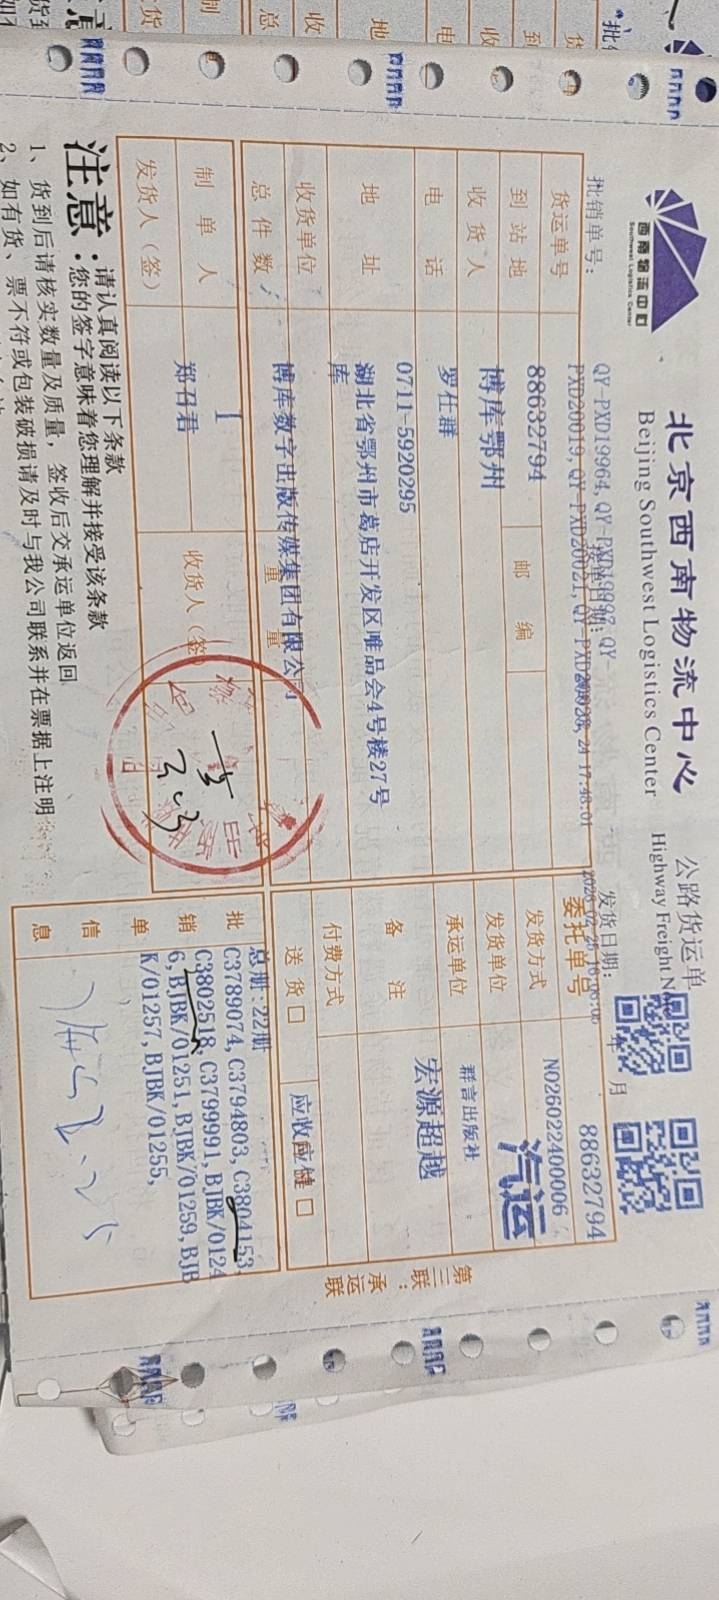 西南物流中心
Southwest Logistics Center
北京西南物流中心
Beijing Southwest Logistics Center
公路货运单
Highway Freight
批销单号:
QY-PXD19964, QY-PXD19997, QY-
PXD20019, QY-PXD20021, QY-PXD20028,
17:48:01
发货日期:
年 月
货运单号
88632794
委托单号
88632794
到站地
博库鄂州
邮编
发货方式
N026022400006
汽运
收货人
罗仕群
发货单位
群言出版社
电话
0711-5920295
承运单位
宏源超越
地址
湖北省鄂州市葛店开发区唯品会4号楼27号
库
备注
收货单位
博库数字出版传媒集团有限公司
付费方式
总件数
1
重量
送货 □
制单人
郑召君
收货人(签
发货人(签)
批销单信息
总册:22册
C3789074, C3794803, C3804153,
C3802518, C3799991, BJBK/0124
6, BJBK/01251, BJBK/01259, BJB
K/01257, BJBK/01255,
第三联:承运联
注意:
请认真阅读以下条款
您的签字意味着您理解并接受该条款
1、货到后请核实数量及质量,签收后交承运单位返回
2、如有货、票不符或包装破损请及时与我公司联系并在票据上注明